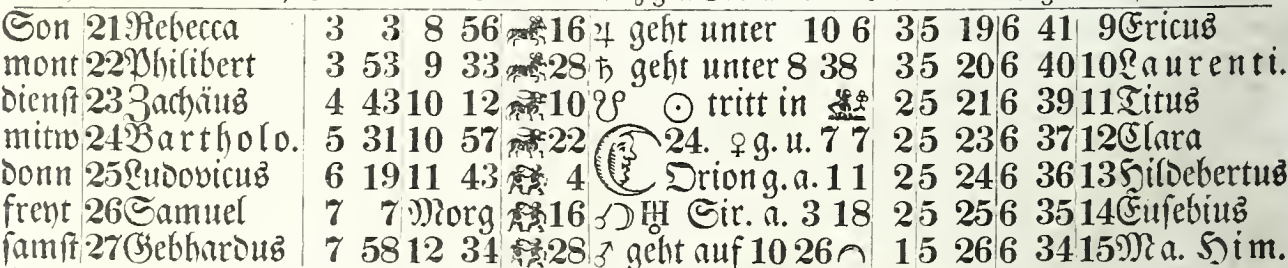 Son 21 Rebecca 3 3 8 56 16 ♃ geht unter 10 6 3 5 19 6 41 9 Ericus
mont 22 Philibert 3 53 9 33 28 ♄ geht unter 8 38 3 5 20 6 40 10 Laurenti.
dienst 23 Zachäus 4 43 10 12 10 ☋ ☉ tritt in 2 5 21 6 39 11 Titus
mitw 24 Bartholo. 5 31 10 57 22 24. ♀ g. u. 7 7 2 5 23 6 37 12 Clara
donn 25 Ludovicus 6 19 11 43 4 Orion g. a. 11 2 5 24 6 36 13 Hildebertus
freyt 26 Samuel 7 7 Morg 16 ☌ ☽ ♅ Sir. a. 3 18 2 5 25 6 35 14 Eusebius
samst 27 Gebhardus 7 58 12 34 28 ♂ geht auf 10 26 1 5 26 6 34 15 Ma. Him.